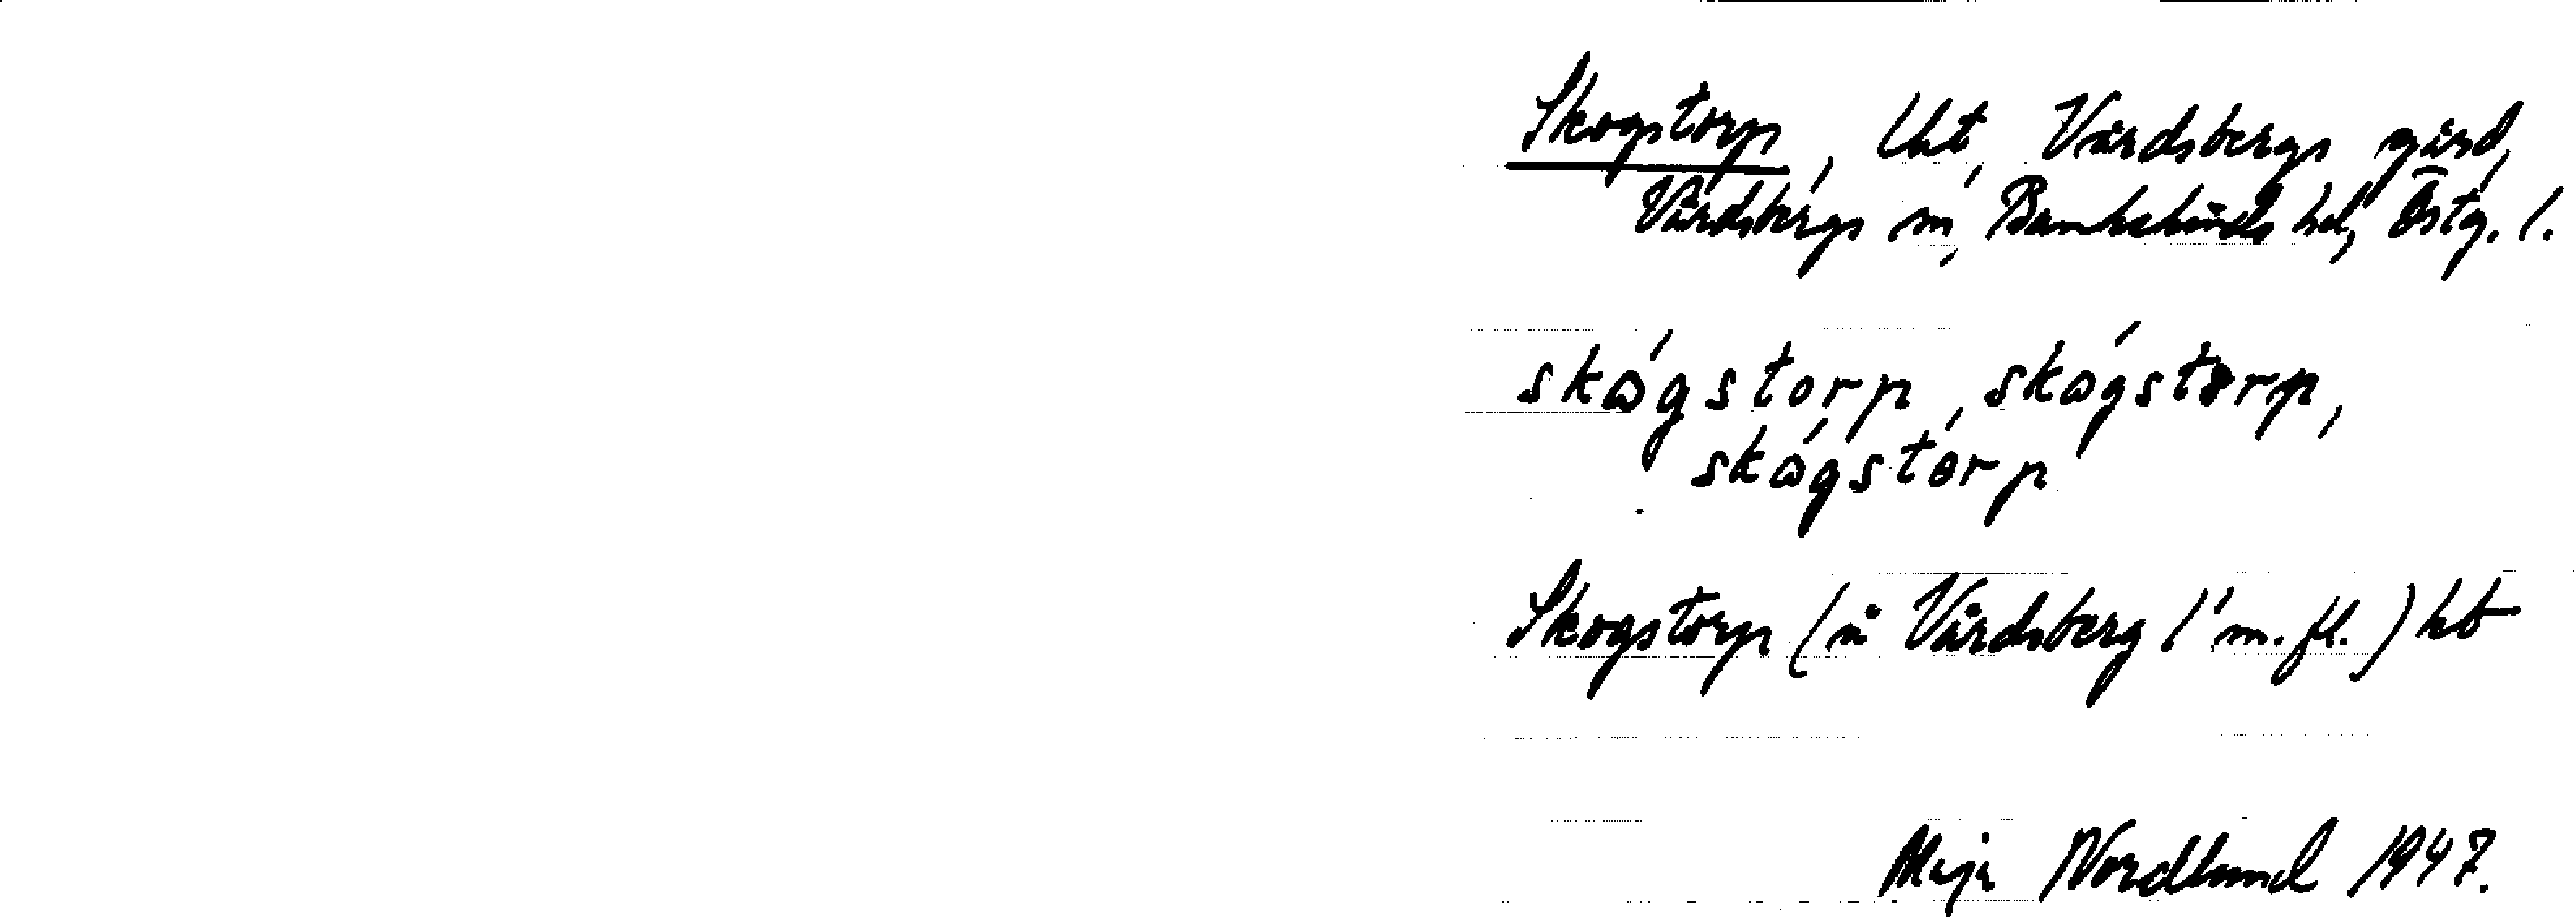 Skogstorp, lht, Vårdsbergs gård,
Vårdsbergs sn, Bankekinds hd, Östg. l.
skógstorp, skógstorp,
skógstorp
Skogstorp (å Vårdsberg 1¹ m. fl.) hb
Maja Nordlund 1947.